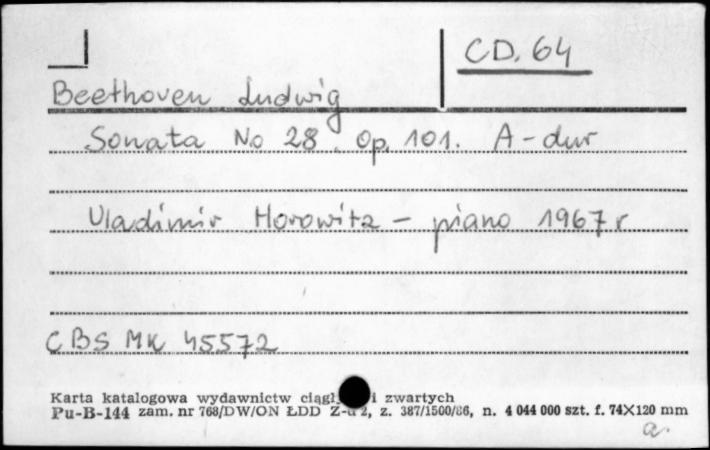 CD. 64
Beethoven Ludwig
Sonata No 28. Op. 101. A-dur
Vladimir Horowitz - piano 1967 r
CBS MK 45572
Karta katalogowa wydawnictw ciągł i zwartych
Pu-B-144 zam. nr 768/DW/ON ŁDD 2, z. 387/1500/86, n. 4 044 000 szt. f. 74X120 mm
a.